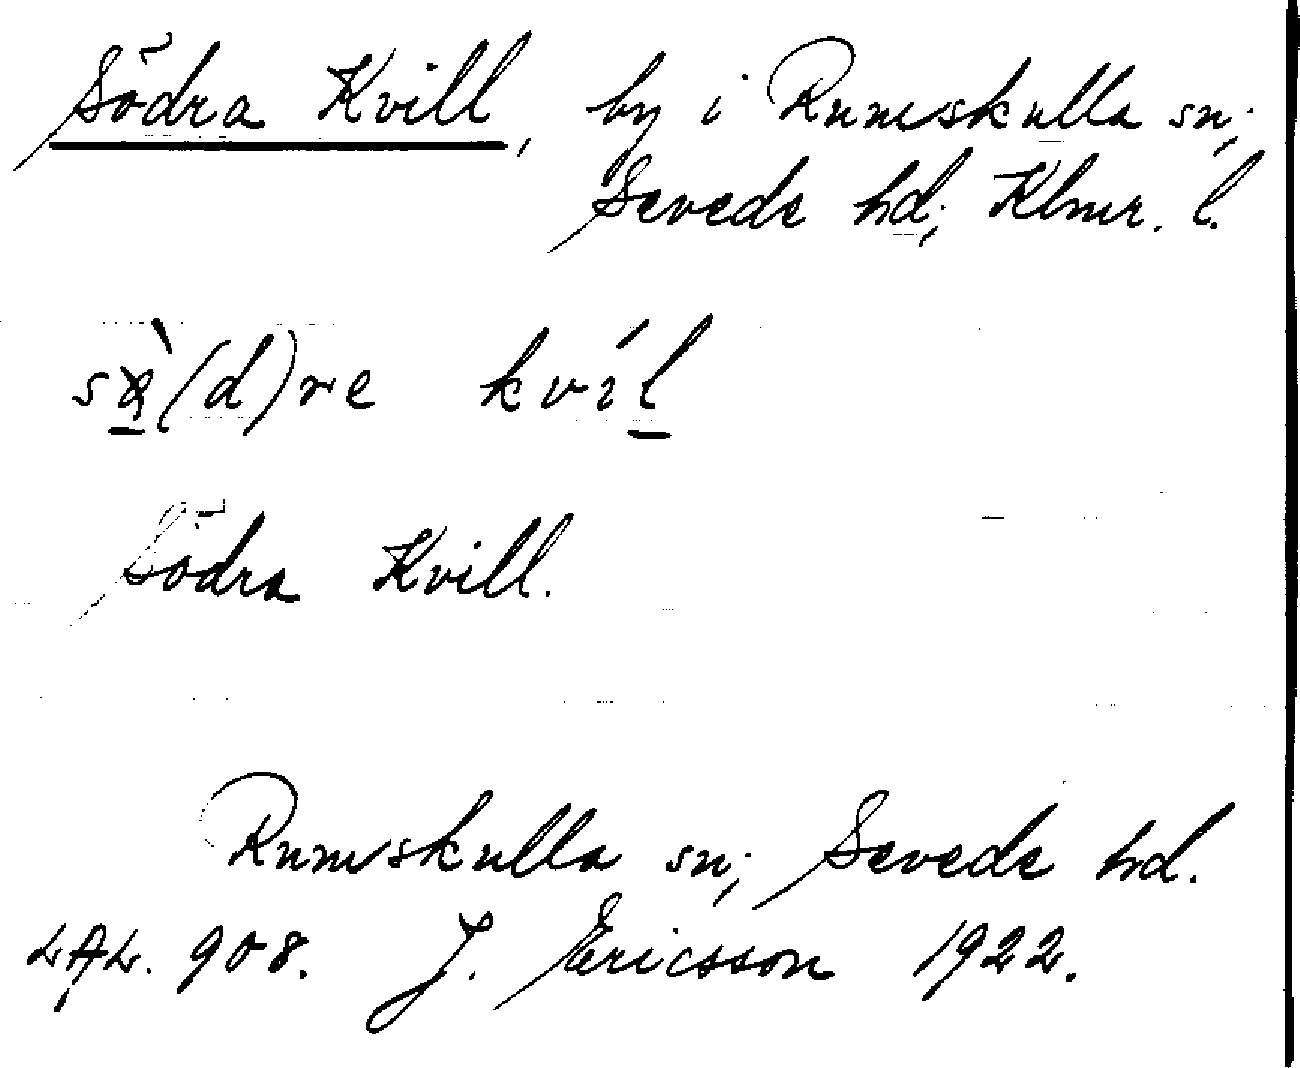 Södra Kvill, by i Rumskulla sn;
Sevede hd; Klmr. l.
kvíl
Södra Kvill.
Rumskulla sn; Sevede hd.
LAL. 908. J. Ericsson 1922.